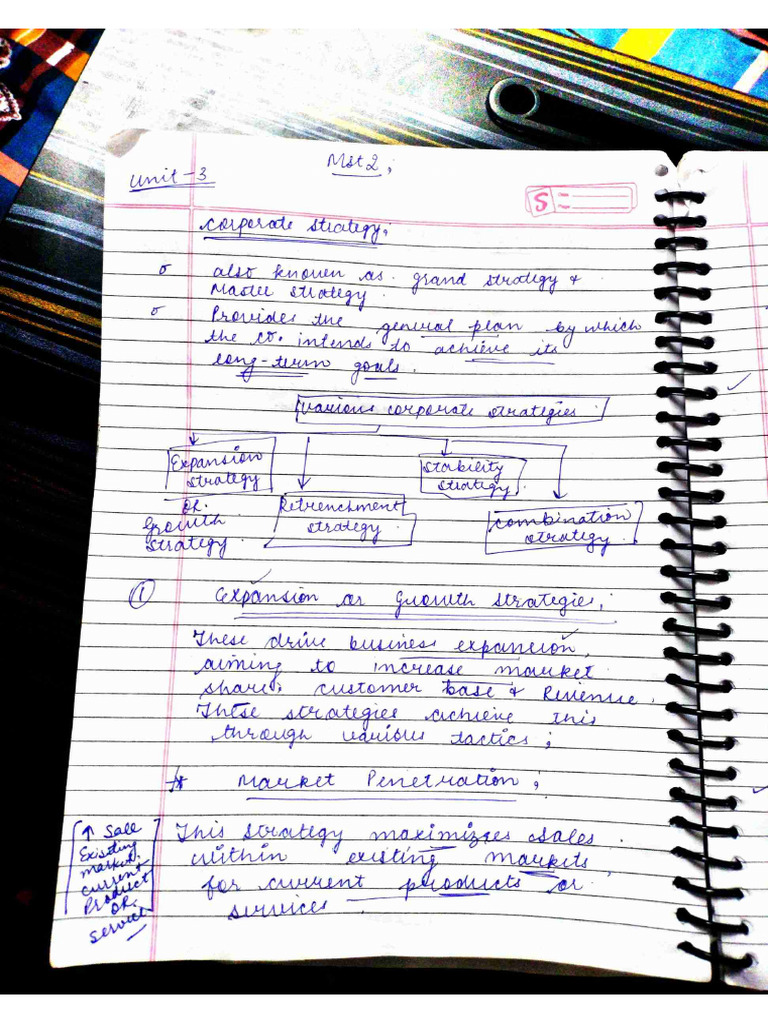 Mst 2;
Unit-3
S
Corporate Strategy;
o also known as grand strategy &
Master strategy.
o Provides the general plan by which
the co. intends to achieve its
long-term goals.
Various corporate strategies
Expansion
strategy
or
Growth
strategy.
Retrenchment
strategy.
Stability
strategy
Combination
strategy.
① Expansion or Growth Strategies;
These drive business expansion,
aiming to increase market
share, customer base & Revenue.
These strategies achieve this
through various tactics;
* Market Penetration;
This strategy maximizes sales
within existing markets,
for current products or
services
↑ Sale
Existing
market,
current
Product
OR
Service